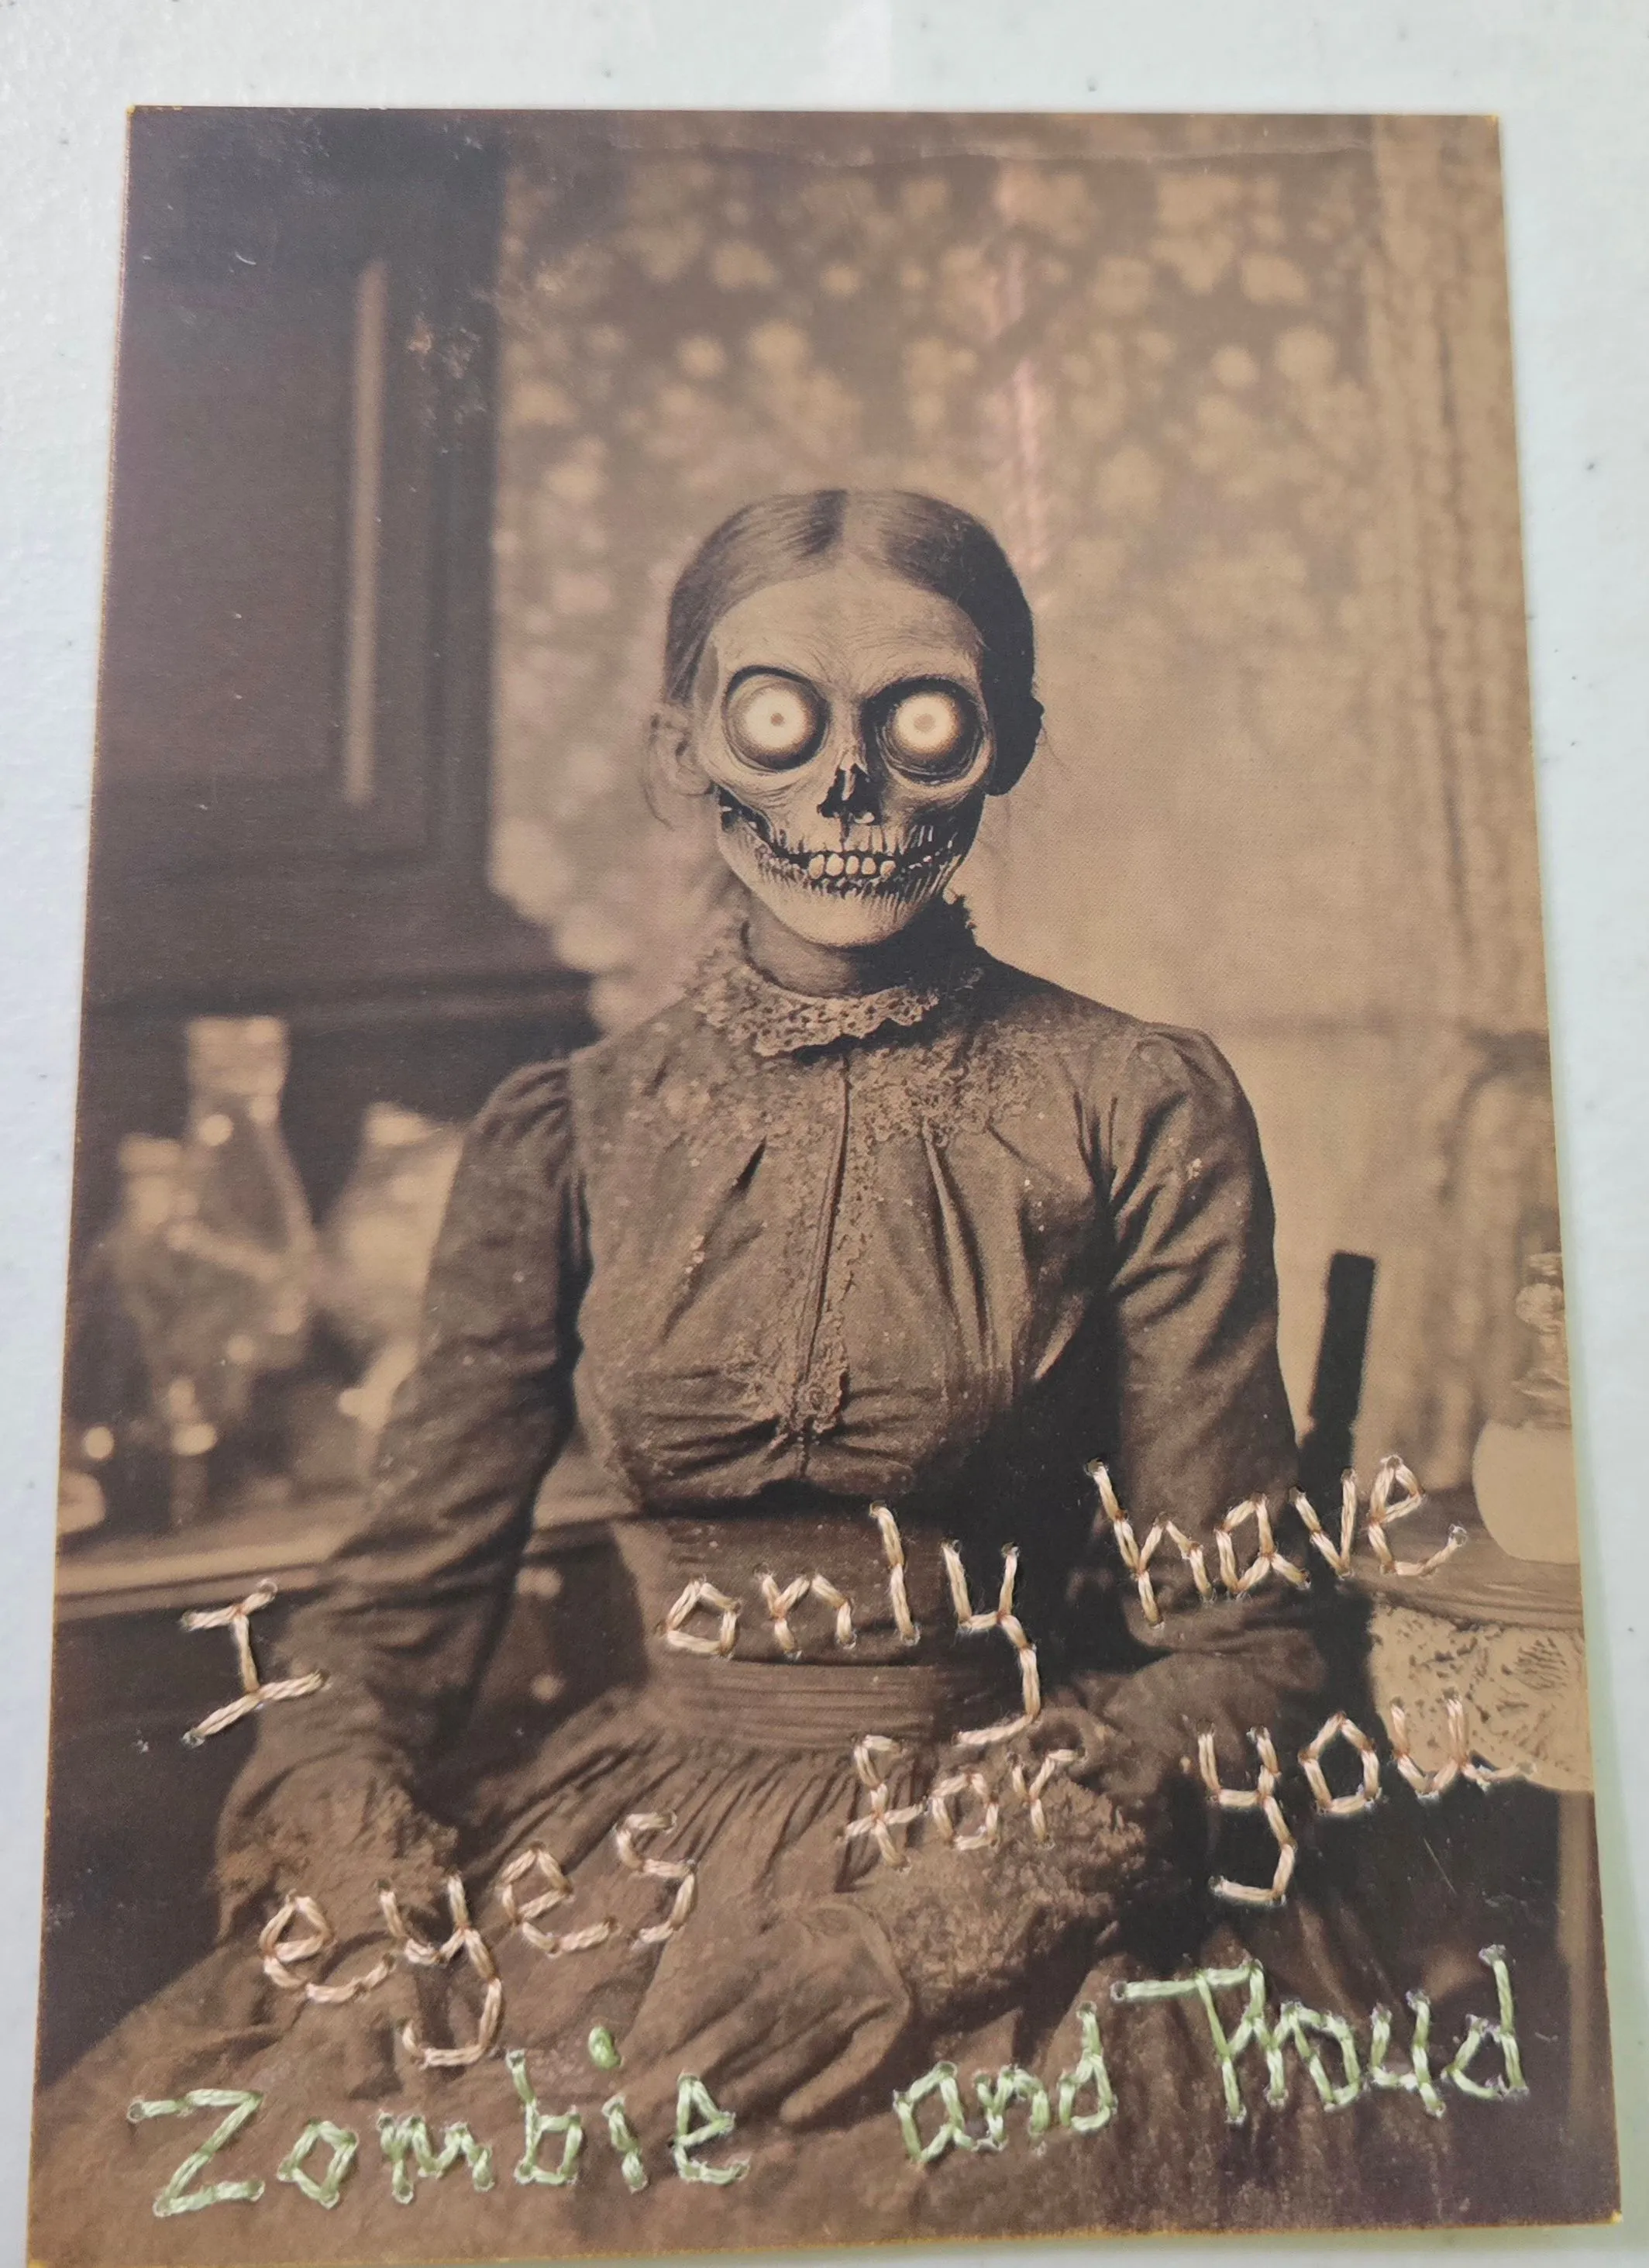 I only have
eyes for you
Zombie and Proud